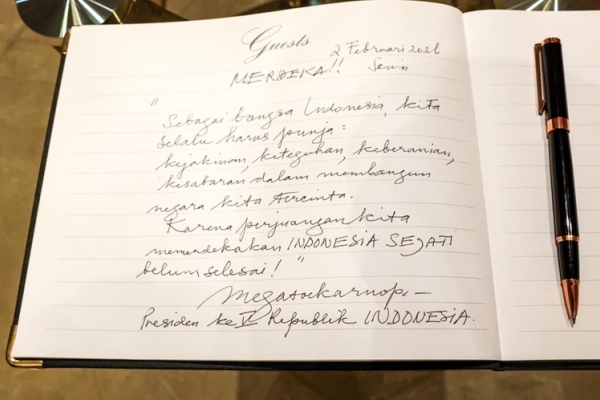 Guests
2 Februari 2026
MERDEKA!! Senin
"
Sebagai bangsa Indonesia, kita
selalu harus punja:
kejakinan, keteguhan, keberanian,
kesabaran dalam membangun
negara kita tercinta.
Karena perjuangan kita
memerdekakan INDONESIA SEJATI
belum selesai! "
Megasoekarnop. —
Presiden ke V Republik INDONESIA.